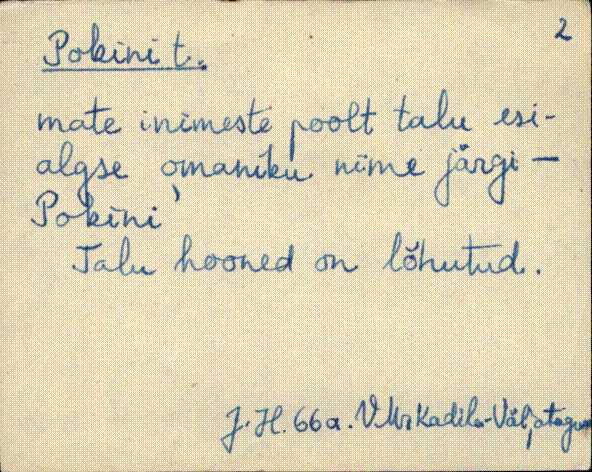 2
Pokini t.
mate inimeste poolt talu esi-
algse omaniku nime järgi —
Pokini
Talu hooned on lõhutud.
J. H. 66 a. VMr Kadila-Väljataguse